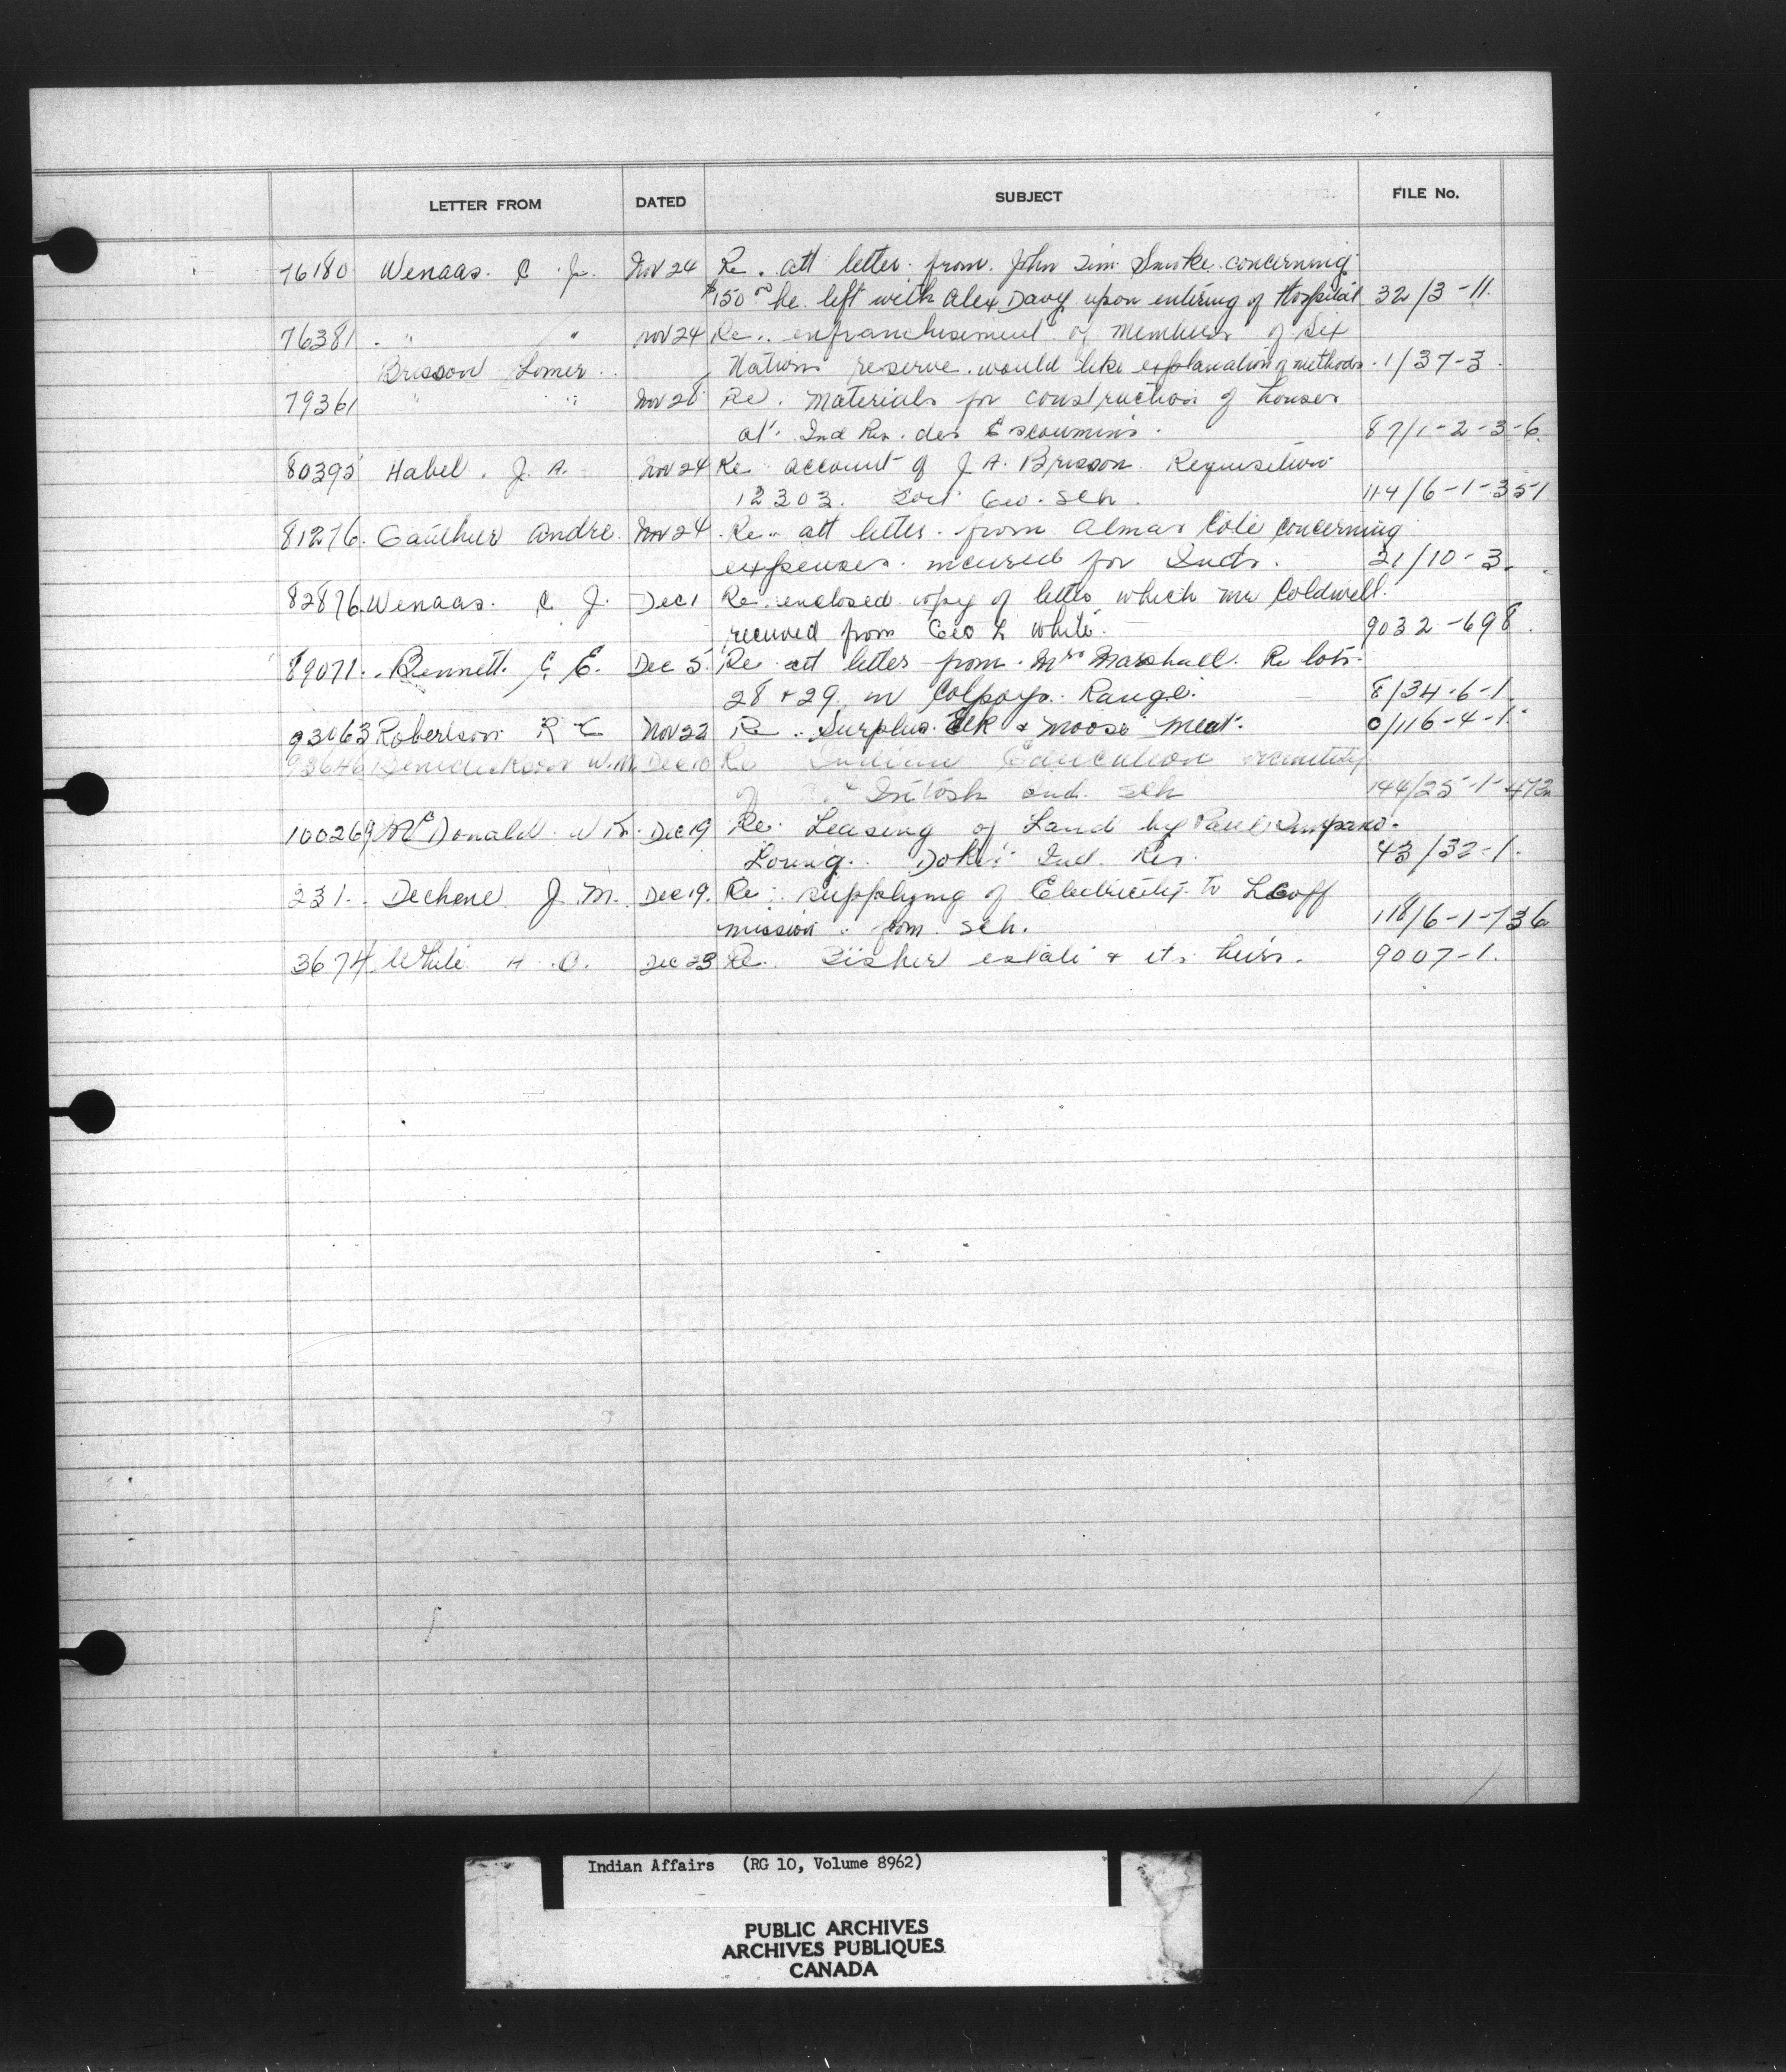 LETTER FROM DATED SUBJECT FILE No.
76180 Wenaas. C. J. Nov 24 Re. att letter. from. John Tim Smoke. concerning
$150 00 he. left with Alex Davy upon entering of Hospital 32/3-11.
76381 " " Nov 24 Re. enfranchisement of members of Six
Brisson Lomer Nations reserve. would like explanation of methods. 1/37-3.
79361 " " Nov 28 Re. Materials for construction of houses
at. Ind Res. des Escoumins. 87/1-2-3-6.
80392 Habel. J. A. Nov 24 Re account of J. A. Brisson Requisition
12303. Geo. Sch. 114/6-1-351
81276. Gauthier Andre. Nov 24. Re. att letter. from Almas Cote concerning
expenses. incured for Inds. 21/10-3.
82876 Wenaas. C J. Dec 1 Re. enclosed copy of letter which Mr Coldwell.
received from Geo L White. 9032-698.
89071. Bennett. C E. Dec 5. Re att letter from. Mrs Marshall. Re lots.
28 & 29 in Colpoys. Range. 8/34-6-1
93063 Robertson R C Nov 22 Re. Surplus. Elk & Moose meat. 0/116-4-1.
93646 Benedickson W. M. Dec 10 Re Indian Education
of Mc Intosh Ind. Sch 144/25-1-472
100269 McDonald. W K. Dec 19 Re. Leasing of Land by Paul
Loring. Dokis Ind. Res. 43/32-1.
231. Dechene J. M. Dec 19. Re. supplying of Electricity to LeGoff
mission. from. Sch. 118/6-1-136
3674 White H. O. Dec 23 Re. Fisher estate & its heirs. 9007-1.
Indian Affairs (RG 10, Volume 8962)
PUBLIC ARCHIVES
ARCHIVES PUBLIQUES
CANADA